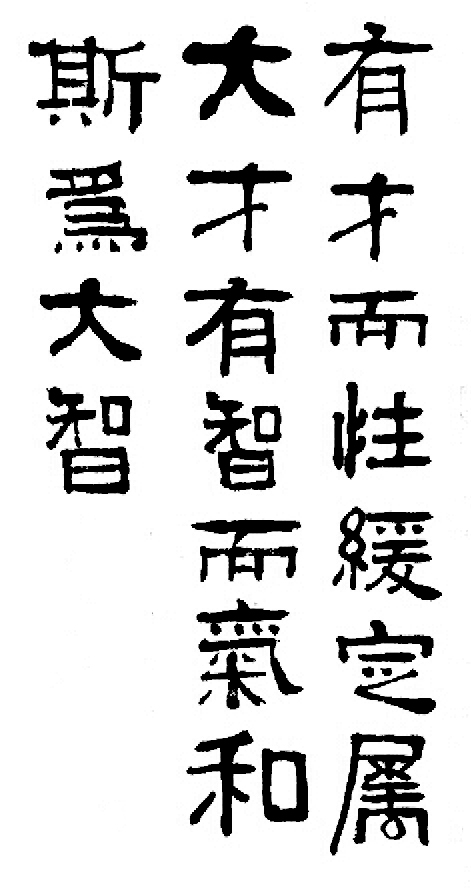 有才而性緩定属
大才有智而氣和
斯爲大智